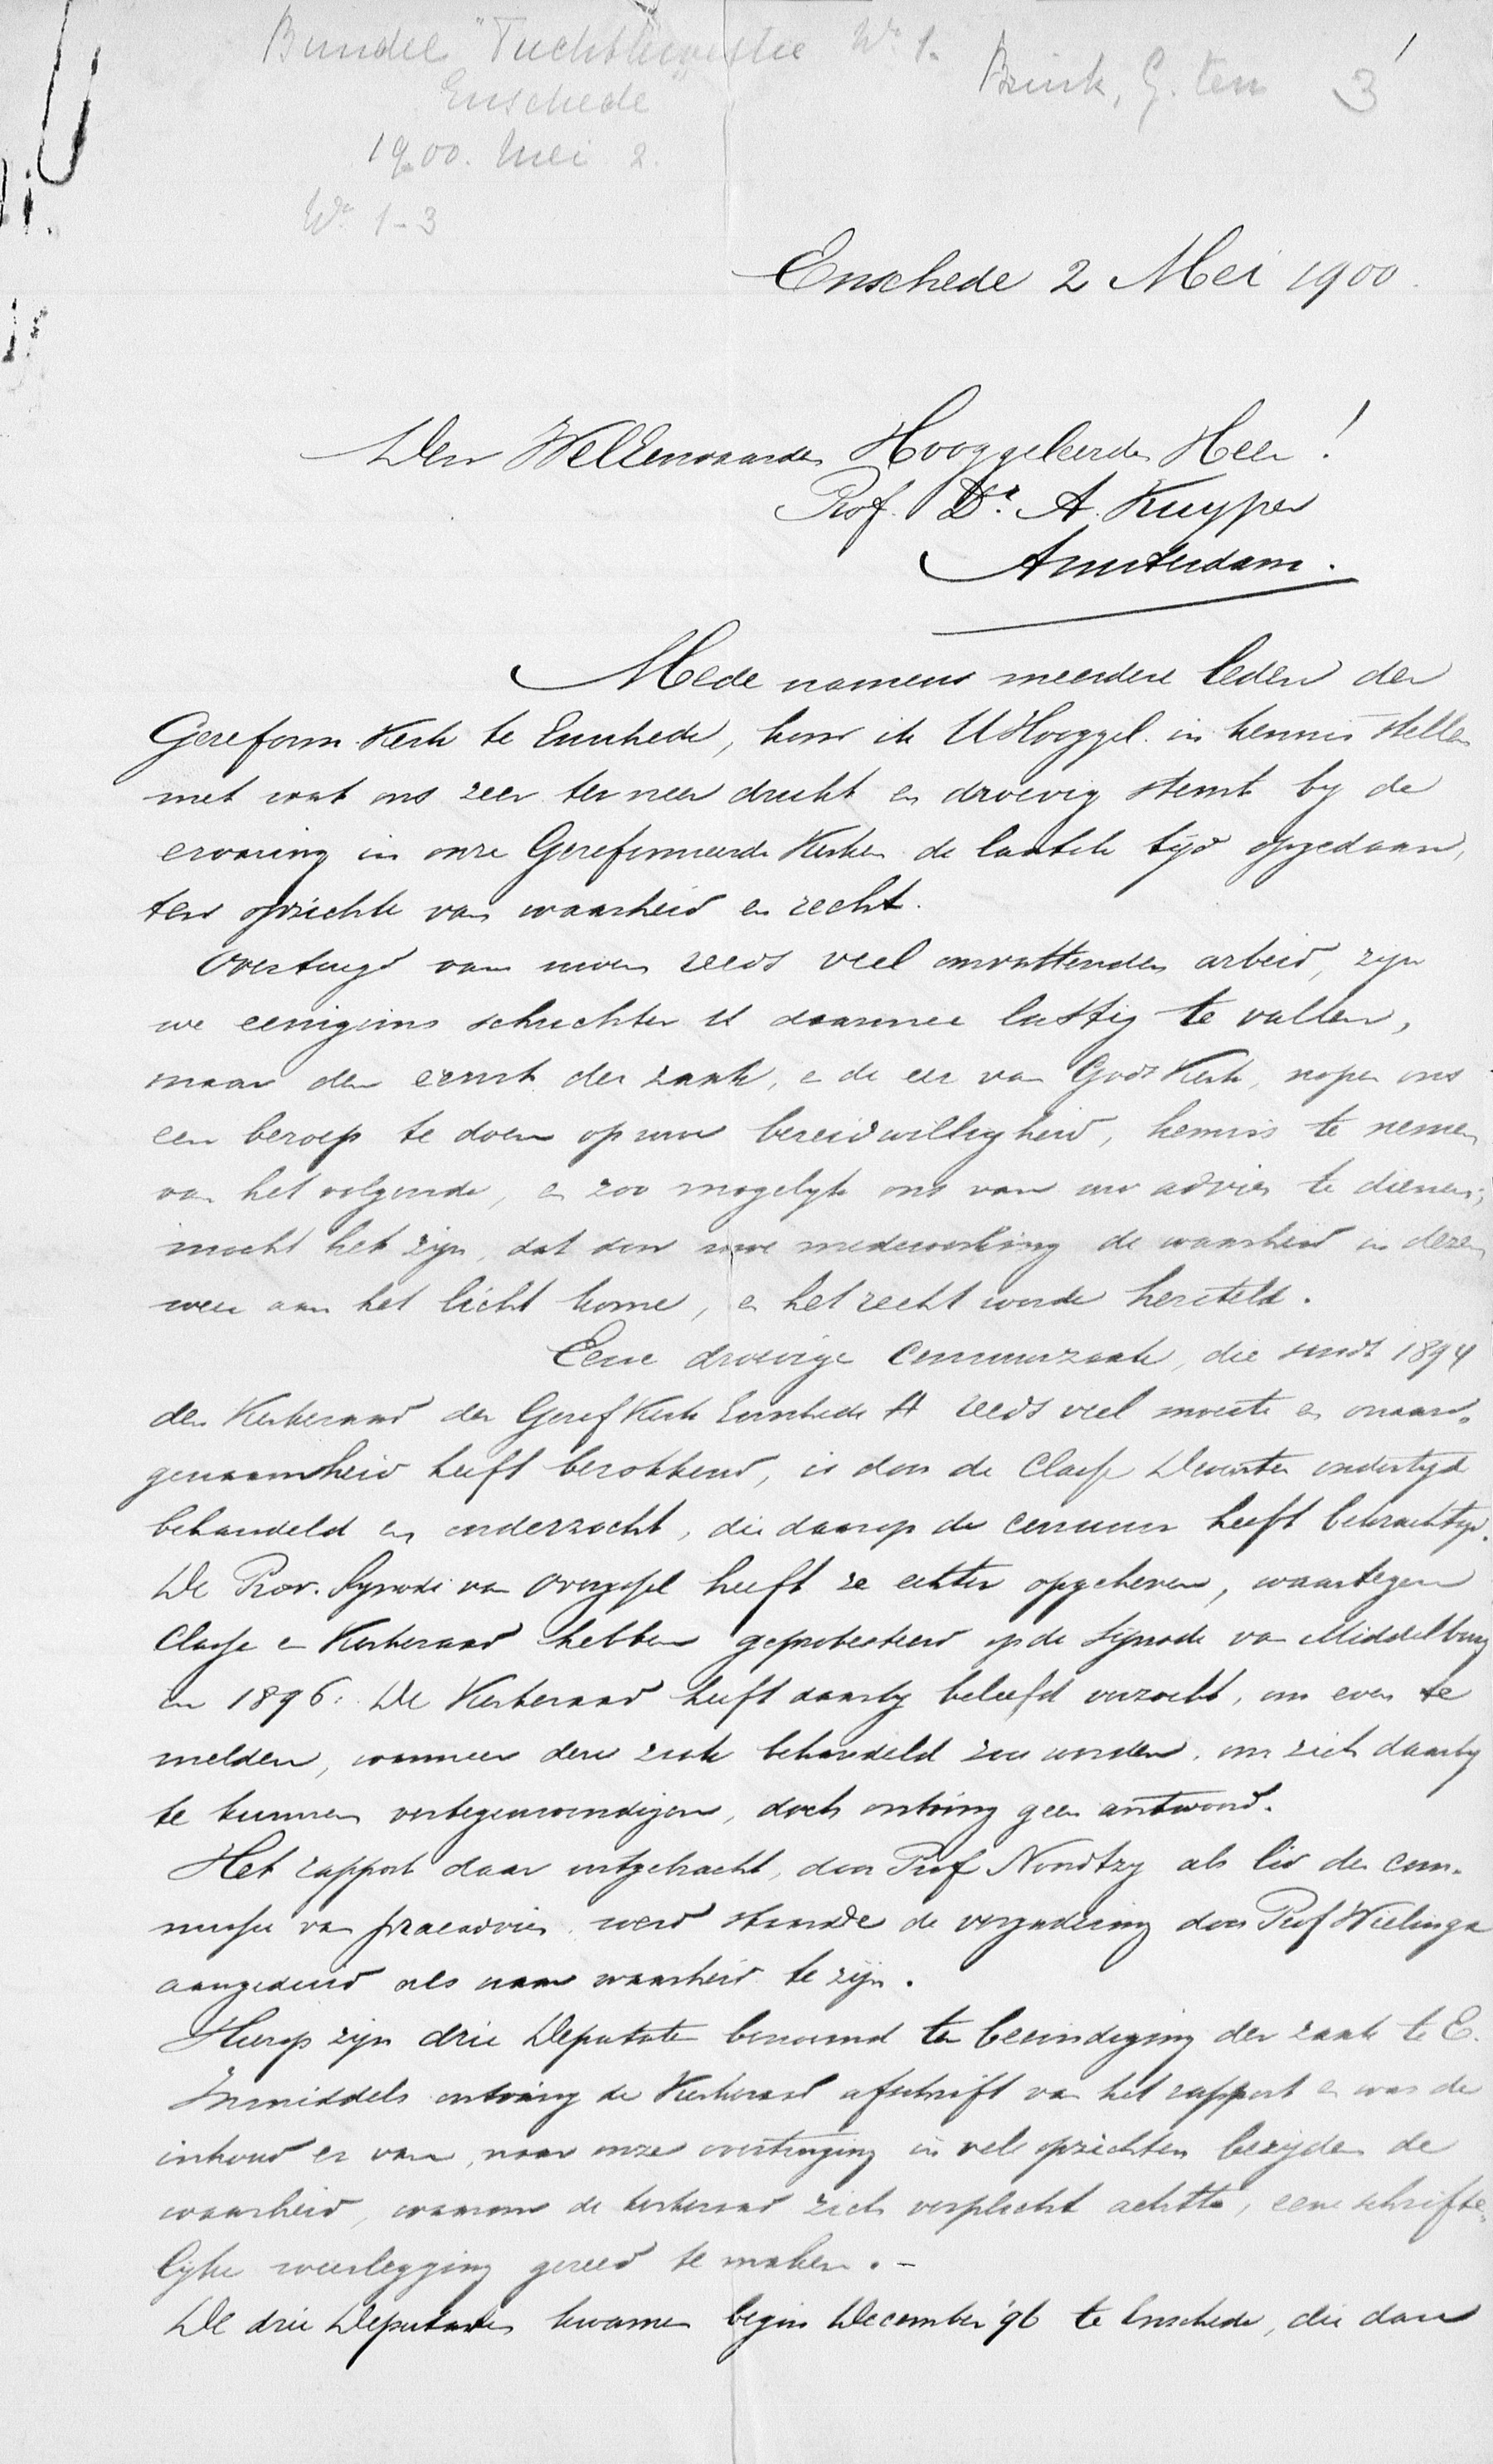 Bundel "Tuchtkwestie No 1.
Brink, G. ten 3
Enschede
1900. Mei 2.
No 1-3
Enschede 2 Mei 1900.
Den WelEerwaarden Hooggeleerden Heer!
Prof. Dr. A. Kuyper
Amsterdam.
Mede namens meerdere leden der
Gereform. Kerk te Enschede, kom ik UHooggel. in kennis stellen
met wat ons zeer ter neer drukt en droevig stemt by de
ervaring in onze Gereformeerde Kerken de laatste tijd opgedaan,
ten opzichte van waarheid en recht.
Overtuigd van uwen reeds veel omvattenden arbeid, zijn
we eenigzins schuchter U daarmee lastig te vallen,
maar den ernst der zaak, en de eer van Gods Kerk, nopen ons
een beroep te doen op uwe bereidwilligheid, kennis te nemen
van het volgende, en zoo mogelyk ons van uw advies te dienen;
mocht het zijn, dat door uwe medewerking de waarheid in dezen
weer aan het licht kome, en het recht worde hersteld.
Eene droevige censuurzaak, die sinds 1894
den Kerkeraad der Geref Kerk Enschede A reeds veel moeite en onaan-
genaamheid heeft berokkend, is door de Classe Deventer indertyd
behandeld en onderzocht, die daarop de censuur heeft bekrachtigd.
De Prov. Synode van Overysel heeft ze echter opgeheven, waartegen
Classe en Kerkeraad hebben geprotesteerd op de Synode van Middelburg
in 1896. De Kerkeraad heeft daarby beleefd verzocht, om even te
melden, wanneer deze zaak behandeld zou worden, om zich daarby
te kunnen vertegenwoordigen, doch ontving geen antwoord.
Het rapport daar uitgebracht, door Prof Noordtzy als lid der com-
missie van praeadvies werd staande de vergadering door Prof Wielinga
aangeduid als naar waarheid te zijn.
Hierop zijn drie Deputaten benoemd ter beeindiging der zaak te E.
Inmiddels ontving de Kerkeraad afschrift van het rapport en was de
inhoud er van, naar onze overtuiging in vele opzichten bezijden de
waarheid, waarom de kerkeraad zich verplicht achtte, eene schrifte-
lyke weerlegging gereed te maken. -
De drie Deputaten kwamen begin December '96 te Enschede, die daar